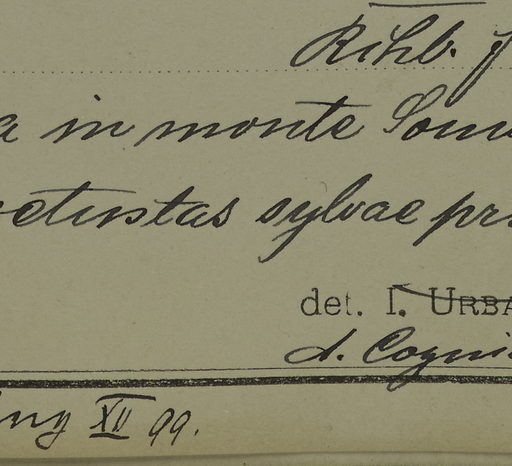 Rchb. f
a in monte Som
vetustas sylvae pr
det. I. URBA
A. Cogni
ng XII 99.